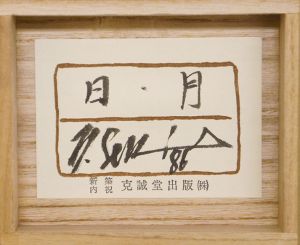 日・月
'86
新築
内祝 克誠堂出版㈱